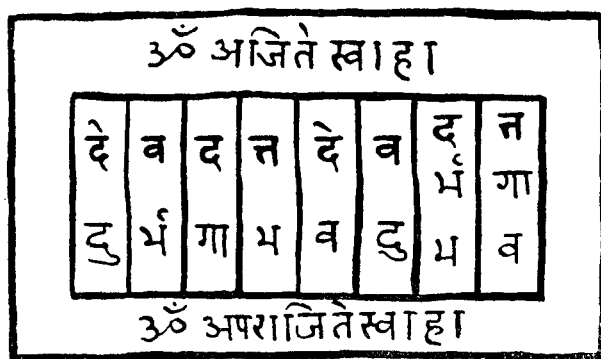 ॐ अजिते स्वाहा
दे व द त्त दे व द त्त
दु र्भ गा भ व दु र्भ गा
भ व
ॐ अपराजिते स्वाहा